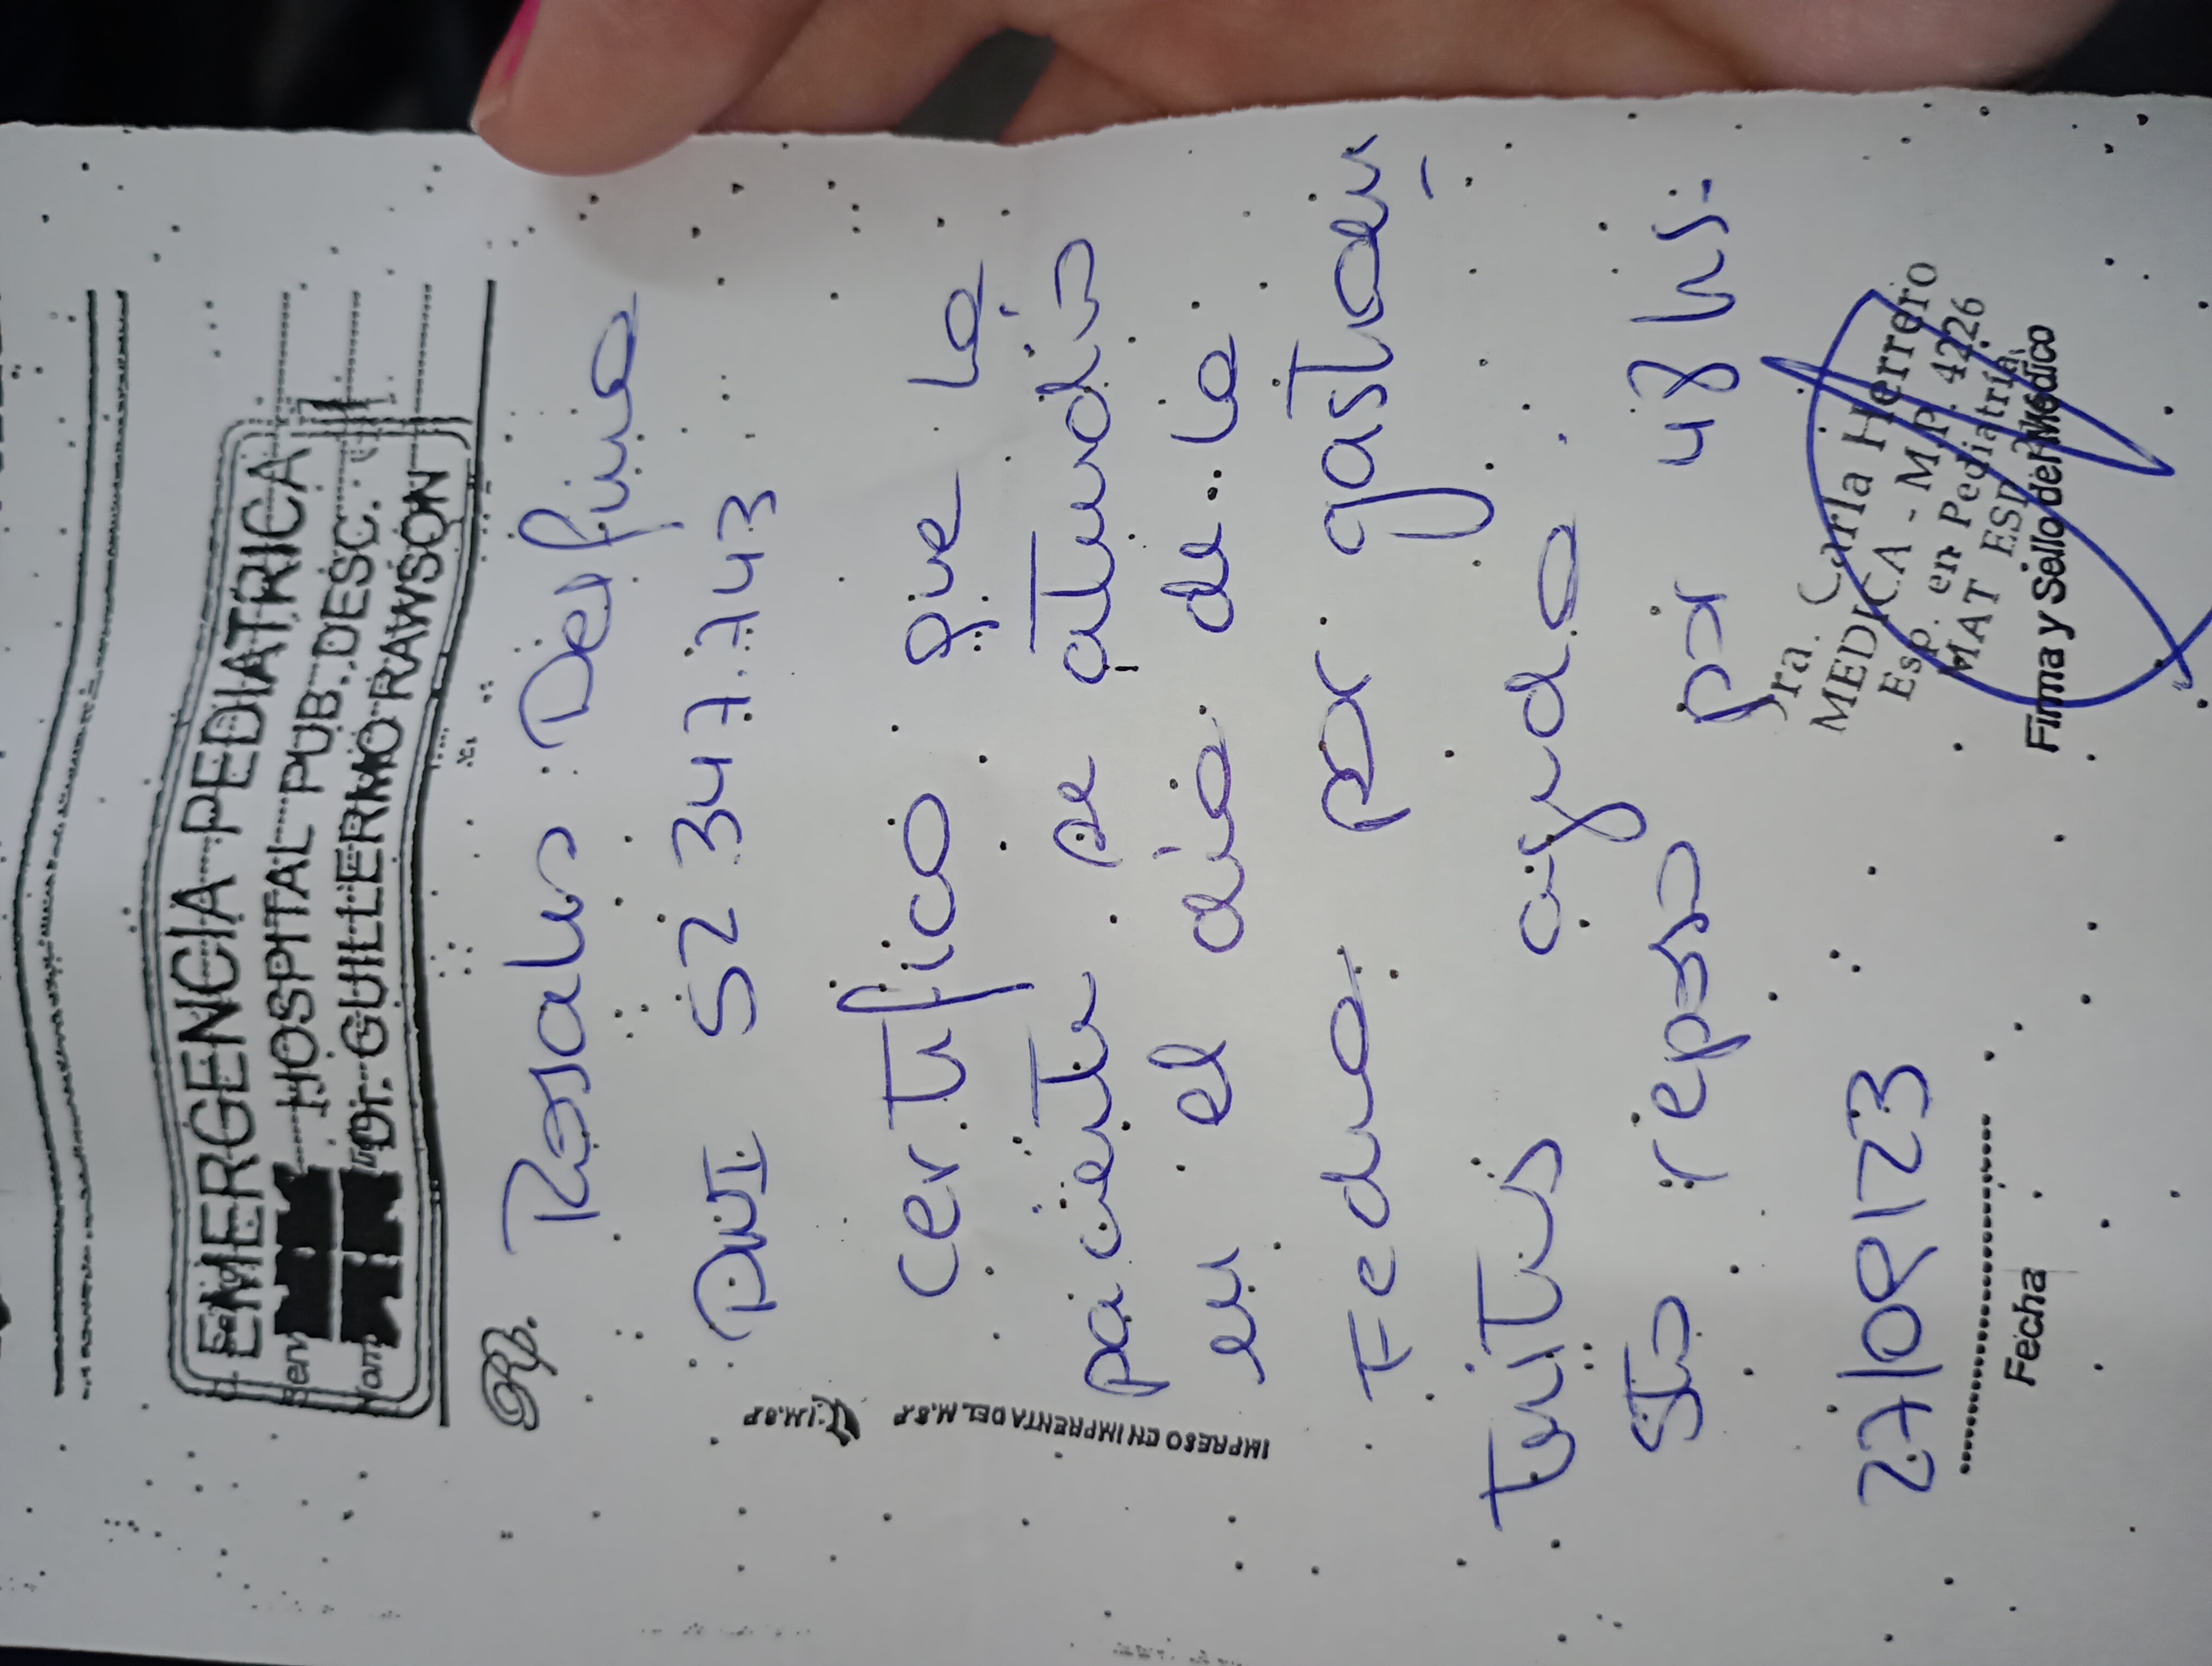 EMERGENCIA PEDIATRICA
HOSPITAL PUB. DESC.
Dr. GUILLERMO RAWSON
Rp.
Rosales Delfina
DNI 52.347.743
Certifico que la
paciente se atendió
en el día de la
Fecha por gastroen-
teritis aguda.
Sto reposo por 48 hs.
27/08/23
Fecha
Dra. Carla Herrero
MEDICA - M.P. 4226
Esp. en Pediatría
MAT ESP
Firma y Sello del Médico
IMPRESO EN IMPRENTA DEL M.S.P
I.M.S.P